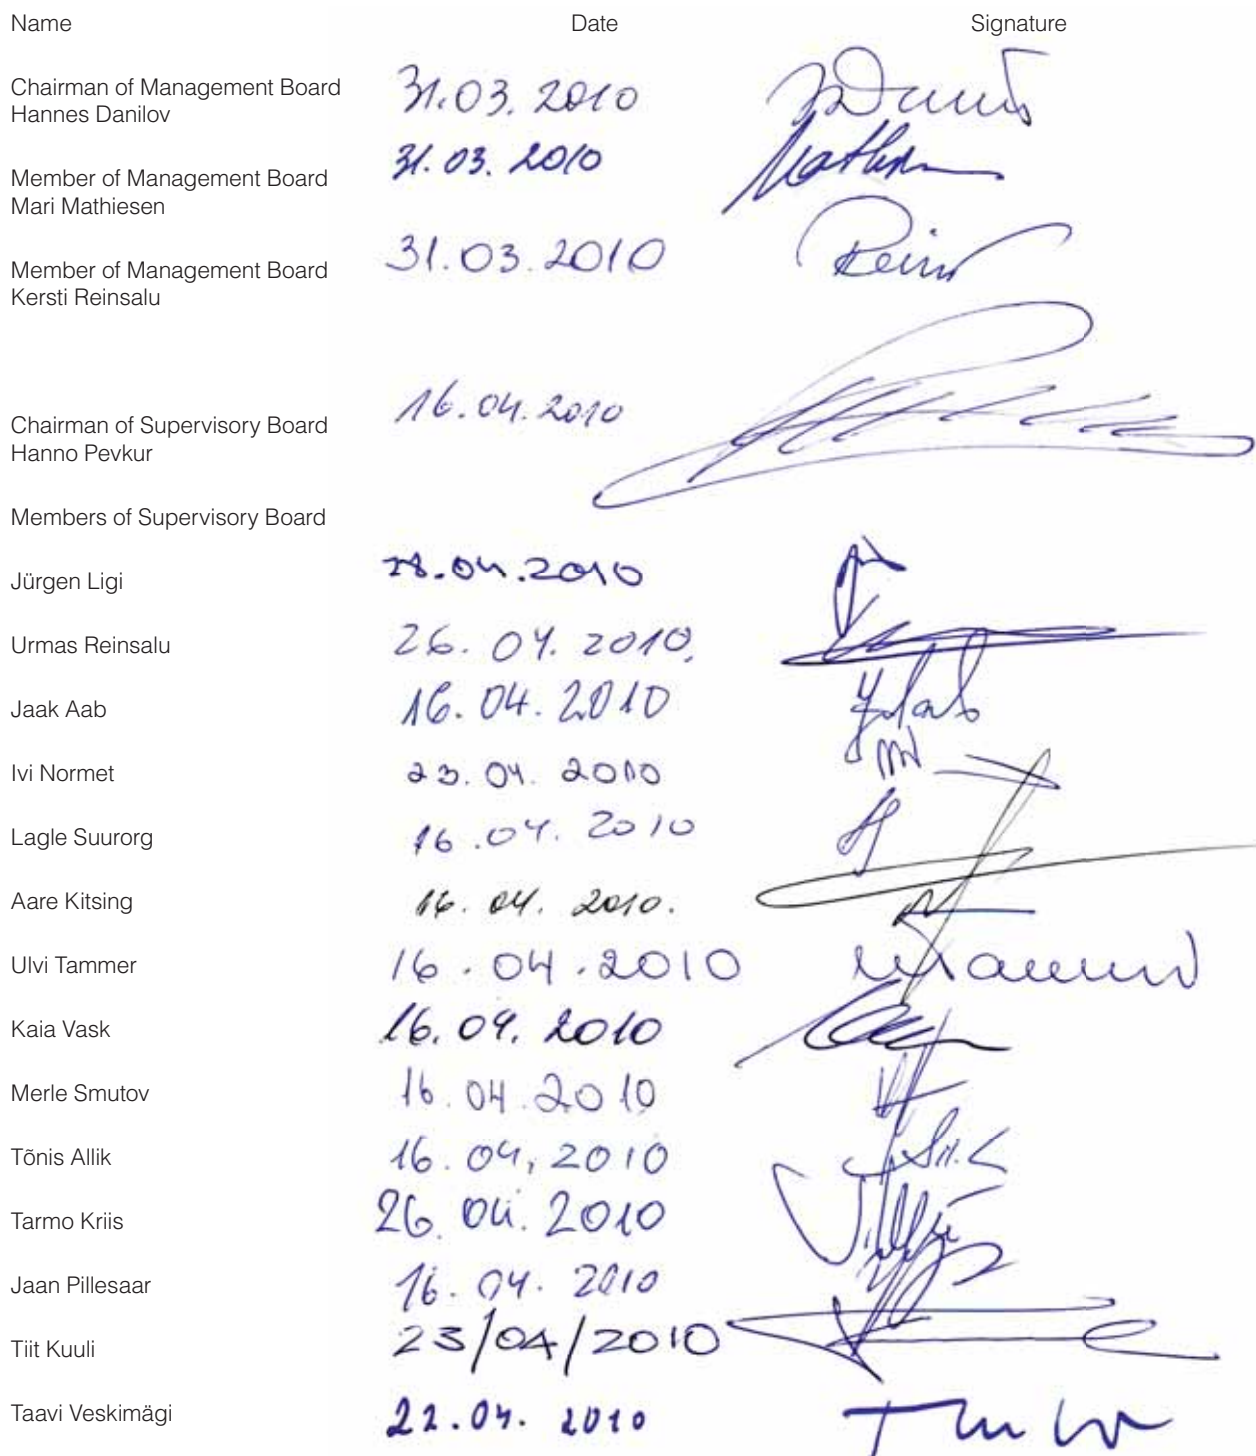 Name Date Signature
Chairman of Management Board 31.03.2010
Hannes Danilov
31.03.2010
Member of Management Board
Mari Mathiesen
31.03.2010
Member of Management Board
Kersti Reinsalu
16.04.2010
Chairman of Supervisory Board
Hanno Pevkur
Members of Supervisory Board
Jürgen Ligi .04.2010
Urmas Reinsalu 26.04.2010.
Jaak Aab 16.04.2010
Ivi Normet 23.04.2010
Lagle Suurorg 16.04.2010
Aare Kitsing 16.04.2010.
Ulvi Tammer 16.04.2010
Kaia Vask 16.04.2010
Merle Smutov 16.04.2010
Tõnis Allik 16.04,2010
Tarmo Kriis 26.04.2010
Jaan Pillesaar 16.04.2010
Tiit Kuuli 23/04/2010
Taavi Veskimägi 22.04.2010